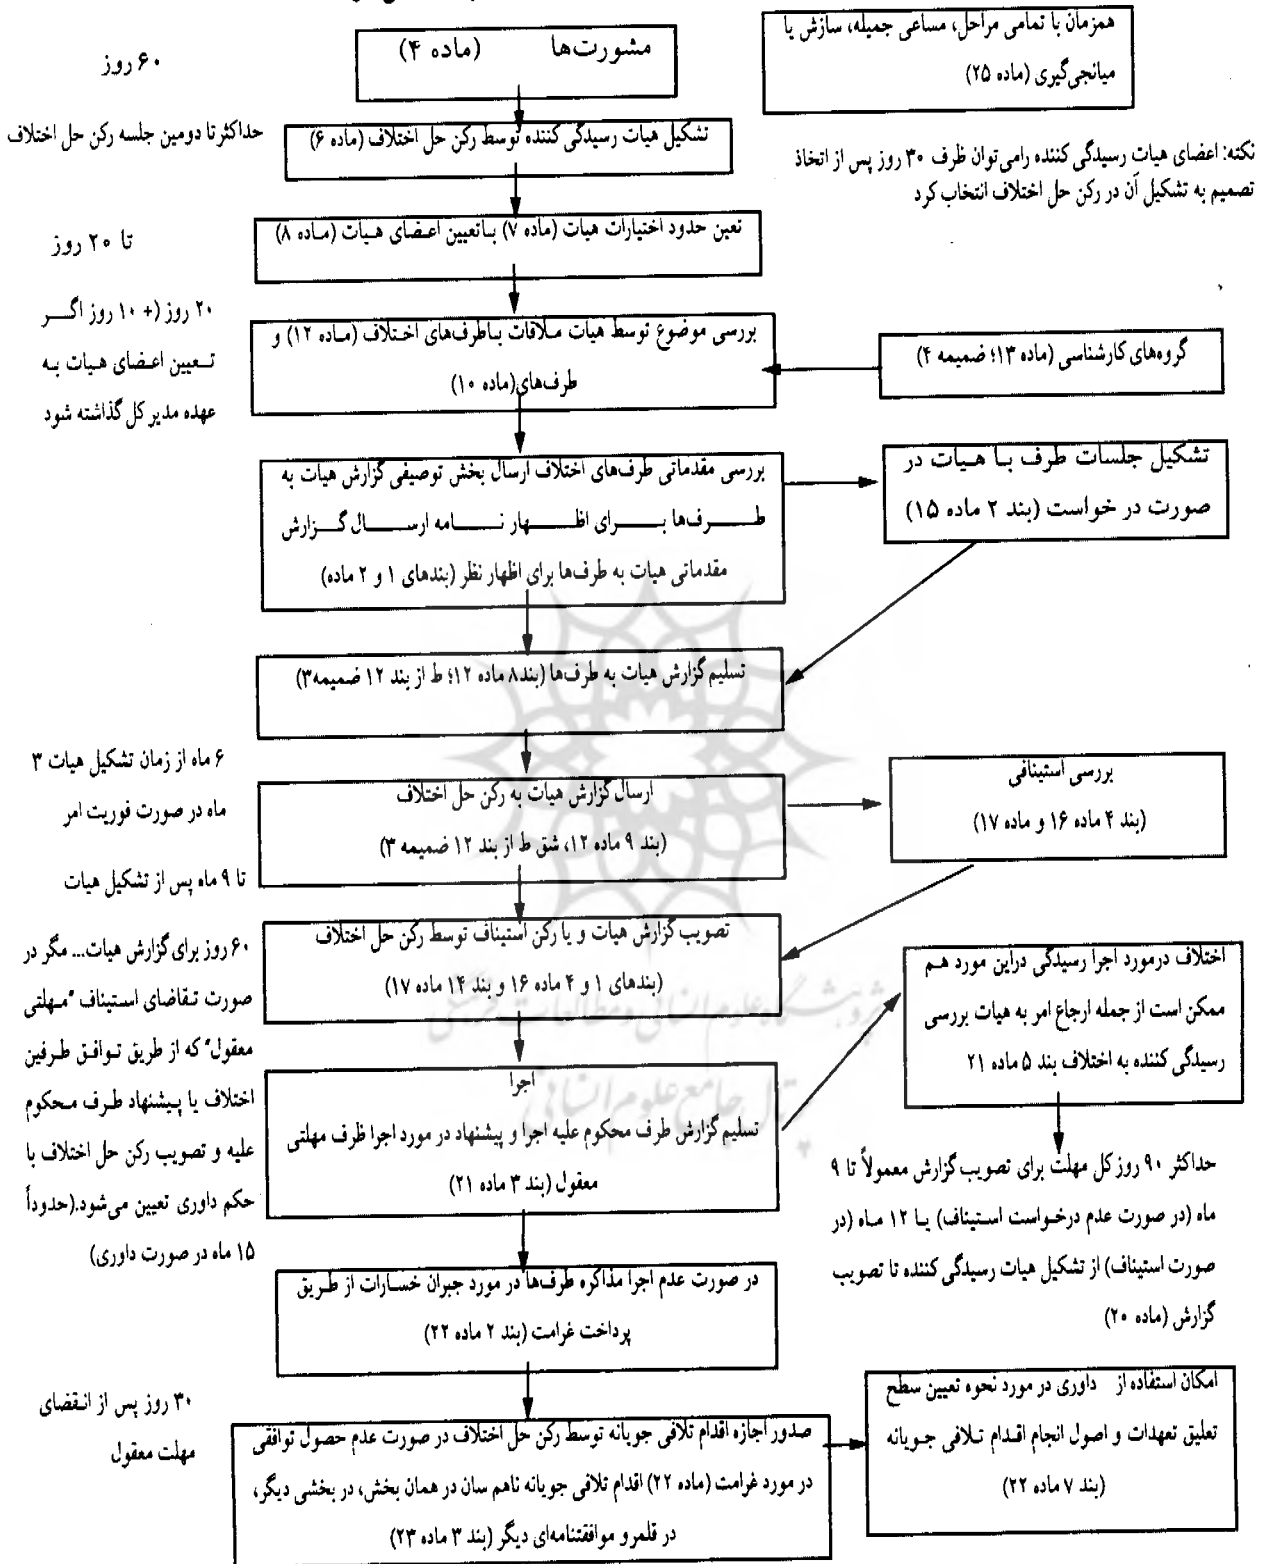 همزمان با تمامی مراحل، مساعی جمیله، سازش یا
میانجی‌گیری (ماده ۲۵)
مشورت‌ها (ماده ۴)
۶۰ روز
تشکیل هیات رسیدگی‌کننده توسط رکن حل اختلاف (ماده ۶)
حداکثر تا دومین جلسه رکن حل اختلاف
نکته: اعضای هیات رسیدگی‌کننده رامی‌توان ظرف ۳۰ روز پس از اتخاذ
تصمیم به تشکیل آن در رکن حل اختلاف انتخاب کرد
تعین حدود اختیارات هیات (ماده ۷) باتعیین اعضای هیات (ماده ۸)
تا ۲۰ روز
بررسی موضوع توسط هیات ملاقات باطرف‌های اختلاف (ماده ۱۲) و
طرف‌های(ماده ۱۰)
گروه‌های کارشناسی (ماده ۱۳؛ ضمیمه ۴)
۲۰ روز (+ ۱۰ روز اگر
تعیین اعضای هیات به
عهده مدیر کل گذاشته شود
بررسی مقدماتی طرف‌های اختلاف ارسال بخش توصیفی گزارش هیات به
طرف‌ها برای اظهار نامه ارسال گزارش
مقدماتی هیات به طرف‌ها برای اظهار نظر (بندهای ۱ و ۲ ماده)
تشکیل جلسات طرف با هیات در
صورت در خواست (بند ۲ ماده ۱۵)
تسلیم گزارش هیات به طرف‌ها (بند۸ ماده ۱۲؛ ط از بند ۱۲ ضمیمه۳)
۶ ماه از زمان تشکیل هیات ۳
ماه در صورت فوریت امر
ارسال گزارش هیات به رکن حل اختلاف
(بند ۹ ماده ۱۲، شق ط از بند ۱۲ ضمیمه ۳)
بررسی استینافی
(بند ۴ ماده ۱۶ و ماده ۱۷)
تا ۹ ماه پس از تشکیل هیات
تصویب گزارش هیات و یا رکن استیناف توسط رکن حل اختلاف
(بندهای ۱ و ۴ ماده ۱۶ و بند ۱۴ ماده ۱۷)
۶۰ روز برای گزارش هیات... مگر در
صورت تقاضای استیناف "مهلتی
معقول" که از طریق توافق طرفین
اختلاف یا پیشنهاد طرف محکوم
علیه و تصویب رکن حل اختلاف با
حکم داوری تعیین می‌شود.(حدوداً
۱۵ ماه در صورت داوری)
اختلاف درمورد اجرا رسیدگی دراین مورد هم
ممکن است از جمله ارجاع امر به هیات بررسی
رسیدگی کننده به اختلاف بند ۵ ماده ۲۱
اجرا
تسلیم گزارش طرف محکوم علیه اجرا و پیشنهاد در مورد اجرا ظرف مهلتی
معقول (بند ۳ ماده ۲۱)
حداکثر ۹۰ روزکل مهلت برای تصویب گزارش معمولاً تا ۹
ماه (در صورت عدم درخواست استیناف) یا ۱۲ ماه (در
صورت استیناف) از تشکیل هیات رسیدگی‌کننده تا تصویب
گزارش (ماده ۲۰)
در صورت عدم اجرا مذاکره طرف‌ها در مورد جبران خسارات از طریق
پرداخت غرامت (بند ۲ ماده ۲۲)
۳۰ روز پس از انقضای
مهلت معقول
صدور اجازه اقدام تلافی جویانه توسط رکن حل اختلاف در صورت عدم حصول توافقی
در مورد غرامت (ماده ۲۲) اقدام تلافی جویانه ناهم سان در همان بخش، در بخشی دیگر،
در قلمرو موافقتنامه‌ای دیگر (بند ۳ ماده ۲۳)
امکان استفاده از داوری در مورد نحوه تعیین سطح
تعلیق تعهدات و اصول انجام اقدام تلافی جویانه
(بند ۷ ماده ۲۲)
پژوهشگاه علوم انسانی و مطالعات فرهنگی
پرتال جامع علوم انسانی